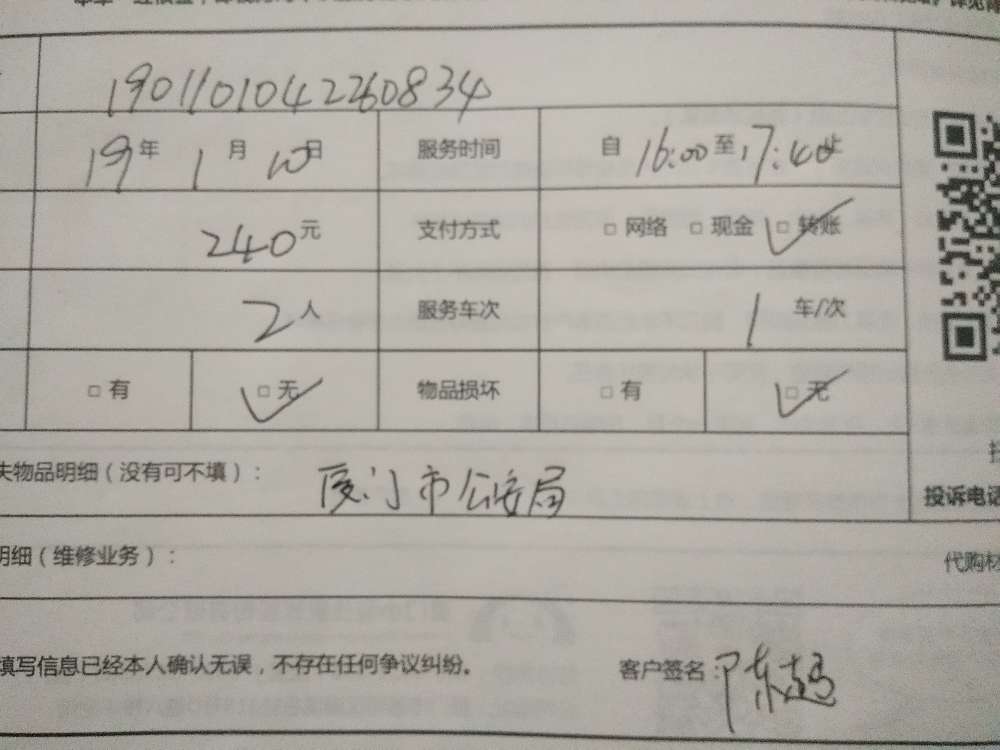 1901101042260834
19年 1月 10日 服务时间 自 16:00 至 17:40 止
240元 支付方式 □ 网络 □ 现金 □ 转账
2人 服务车次 1 车/次
□ 有 □ 无 物品损坏 □ 有 □ 无
失物品明细（没有可不填）： 厦门市公安局
投诉电话
明细（维修业务）： 代购材
填写信息已经本人确认无误，不存在任何争议纠纷。 客户签名：陈超